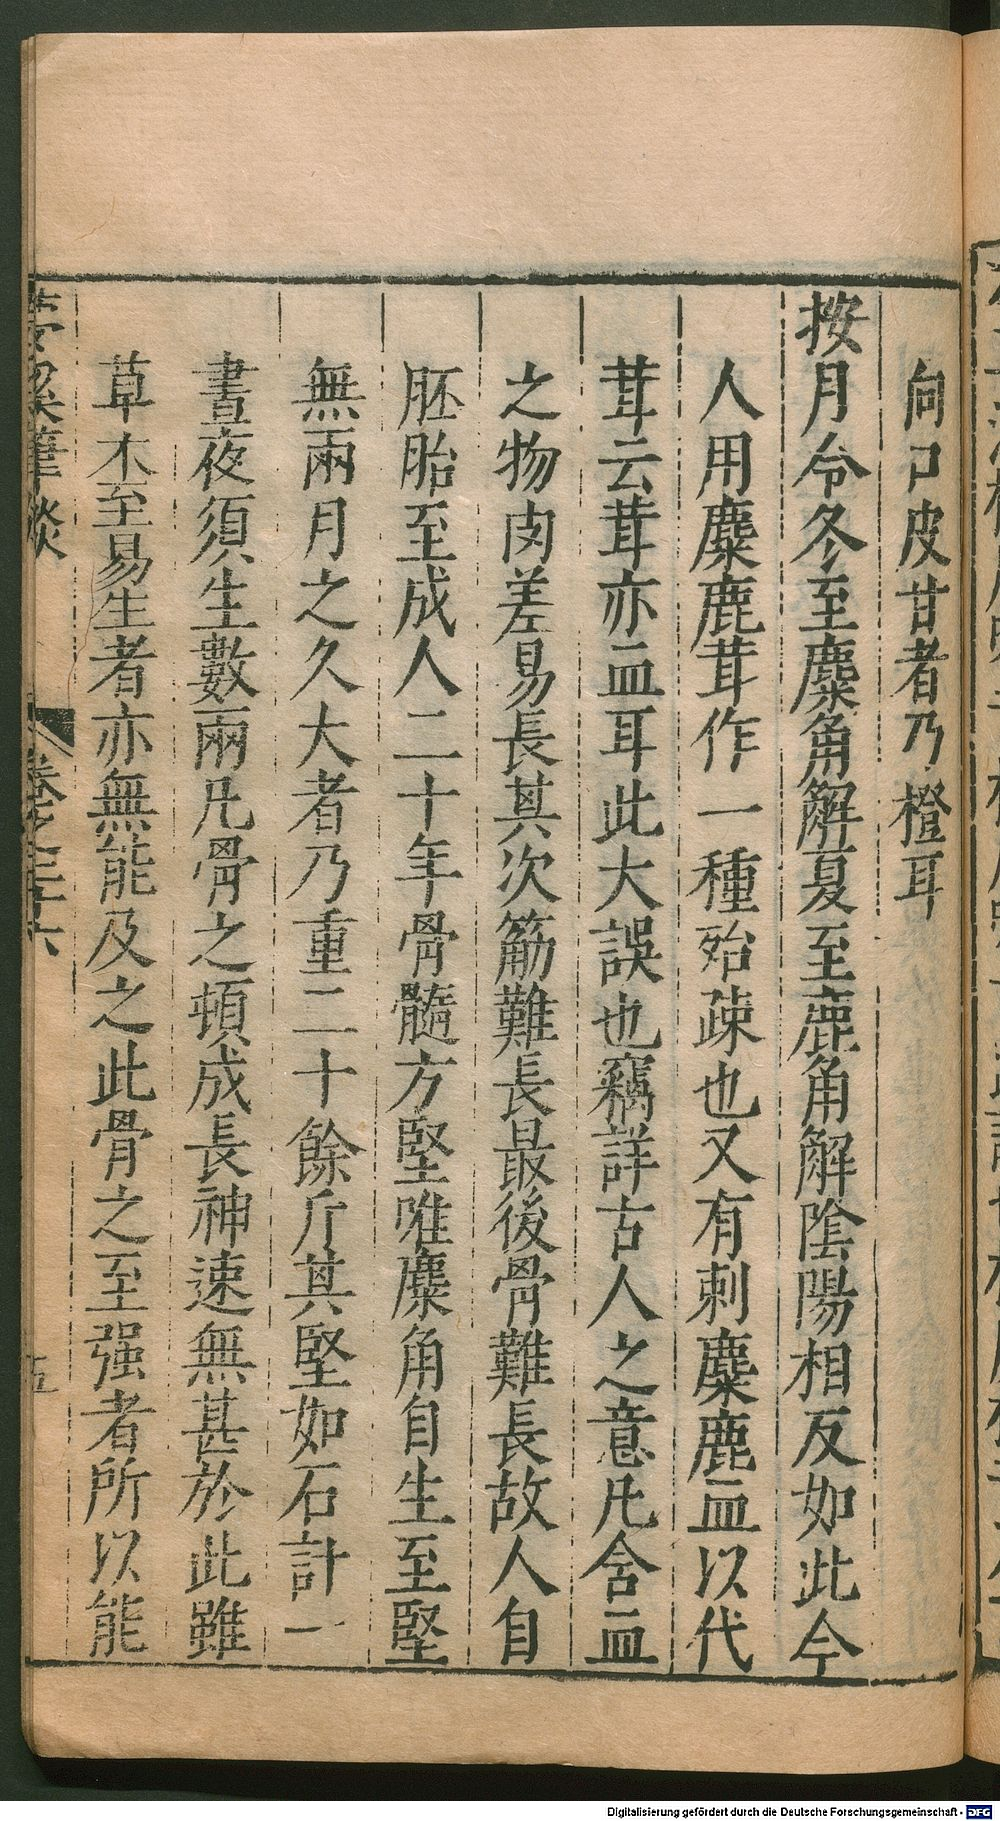 向口皮甘者乃橙耳
按月令冬至麋角解夏至鹿角解陰陽相反如此今
人用麋鹿茸作一種殆疎也又有刺麋鹿血以代
茸云茸亦血耳此大誤也竊詳古人之意凡含血
之物肉差易長其次筋難長最後骨難長故人自
胚胎至成人二十年骨髓方堅唯麋角自生至堅
無兩月之久大者乃重二十餘斤其堅如石計一
晝夜須生數兩凡骨之頓成長神速無甚於此雖
草木至易生者亦無能及之此骨之至强者所以能
夢溪筆談 卷之二十六 十五
Digitalisierung gefördert durch die Deutsche Forschungsgemeinschaft - DFG